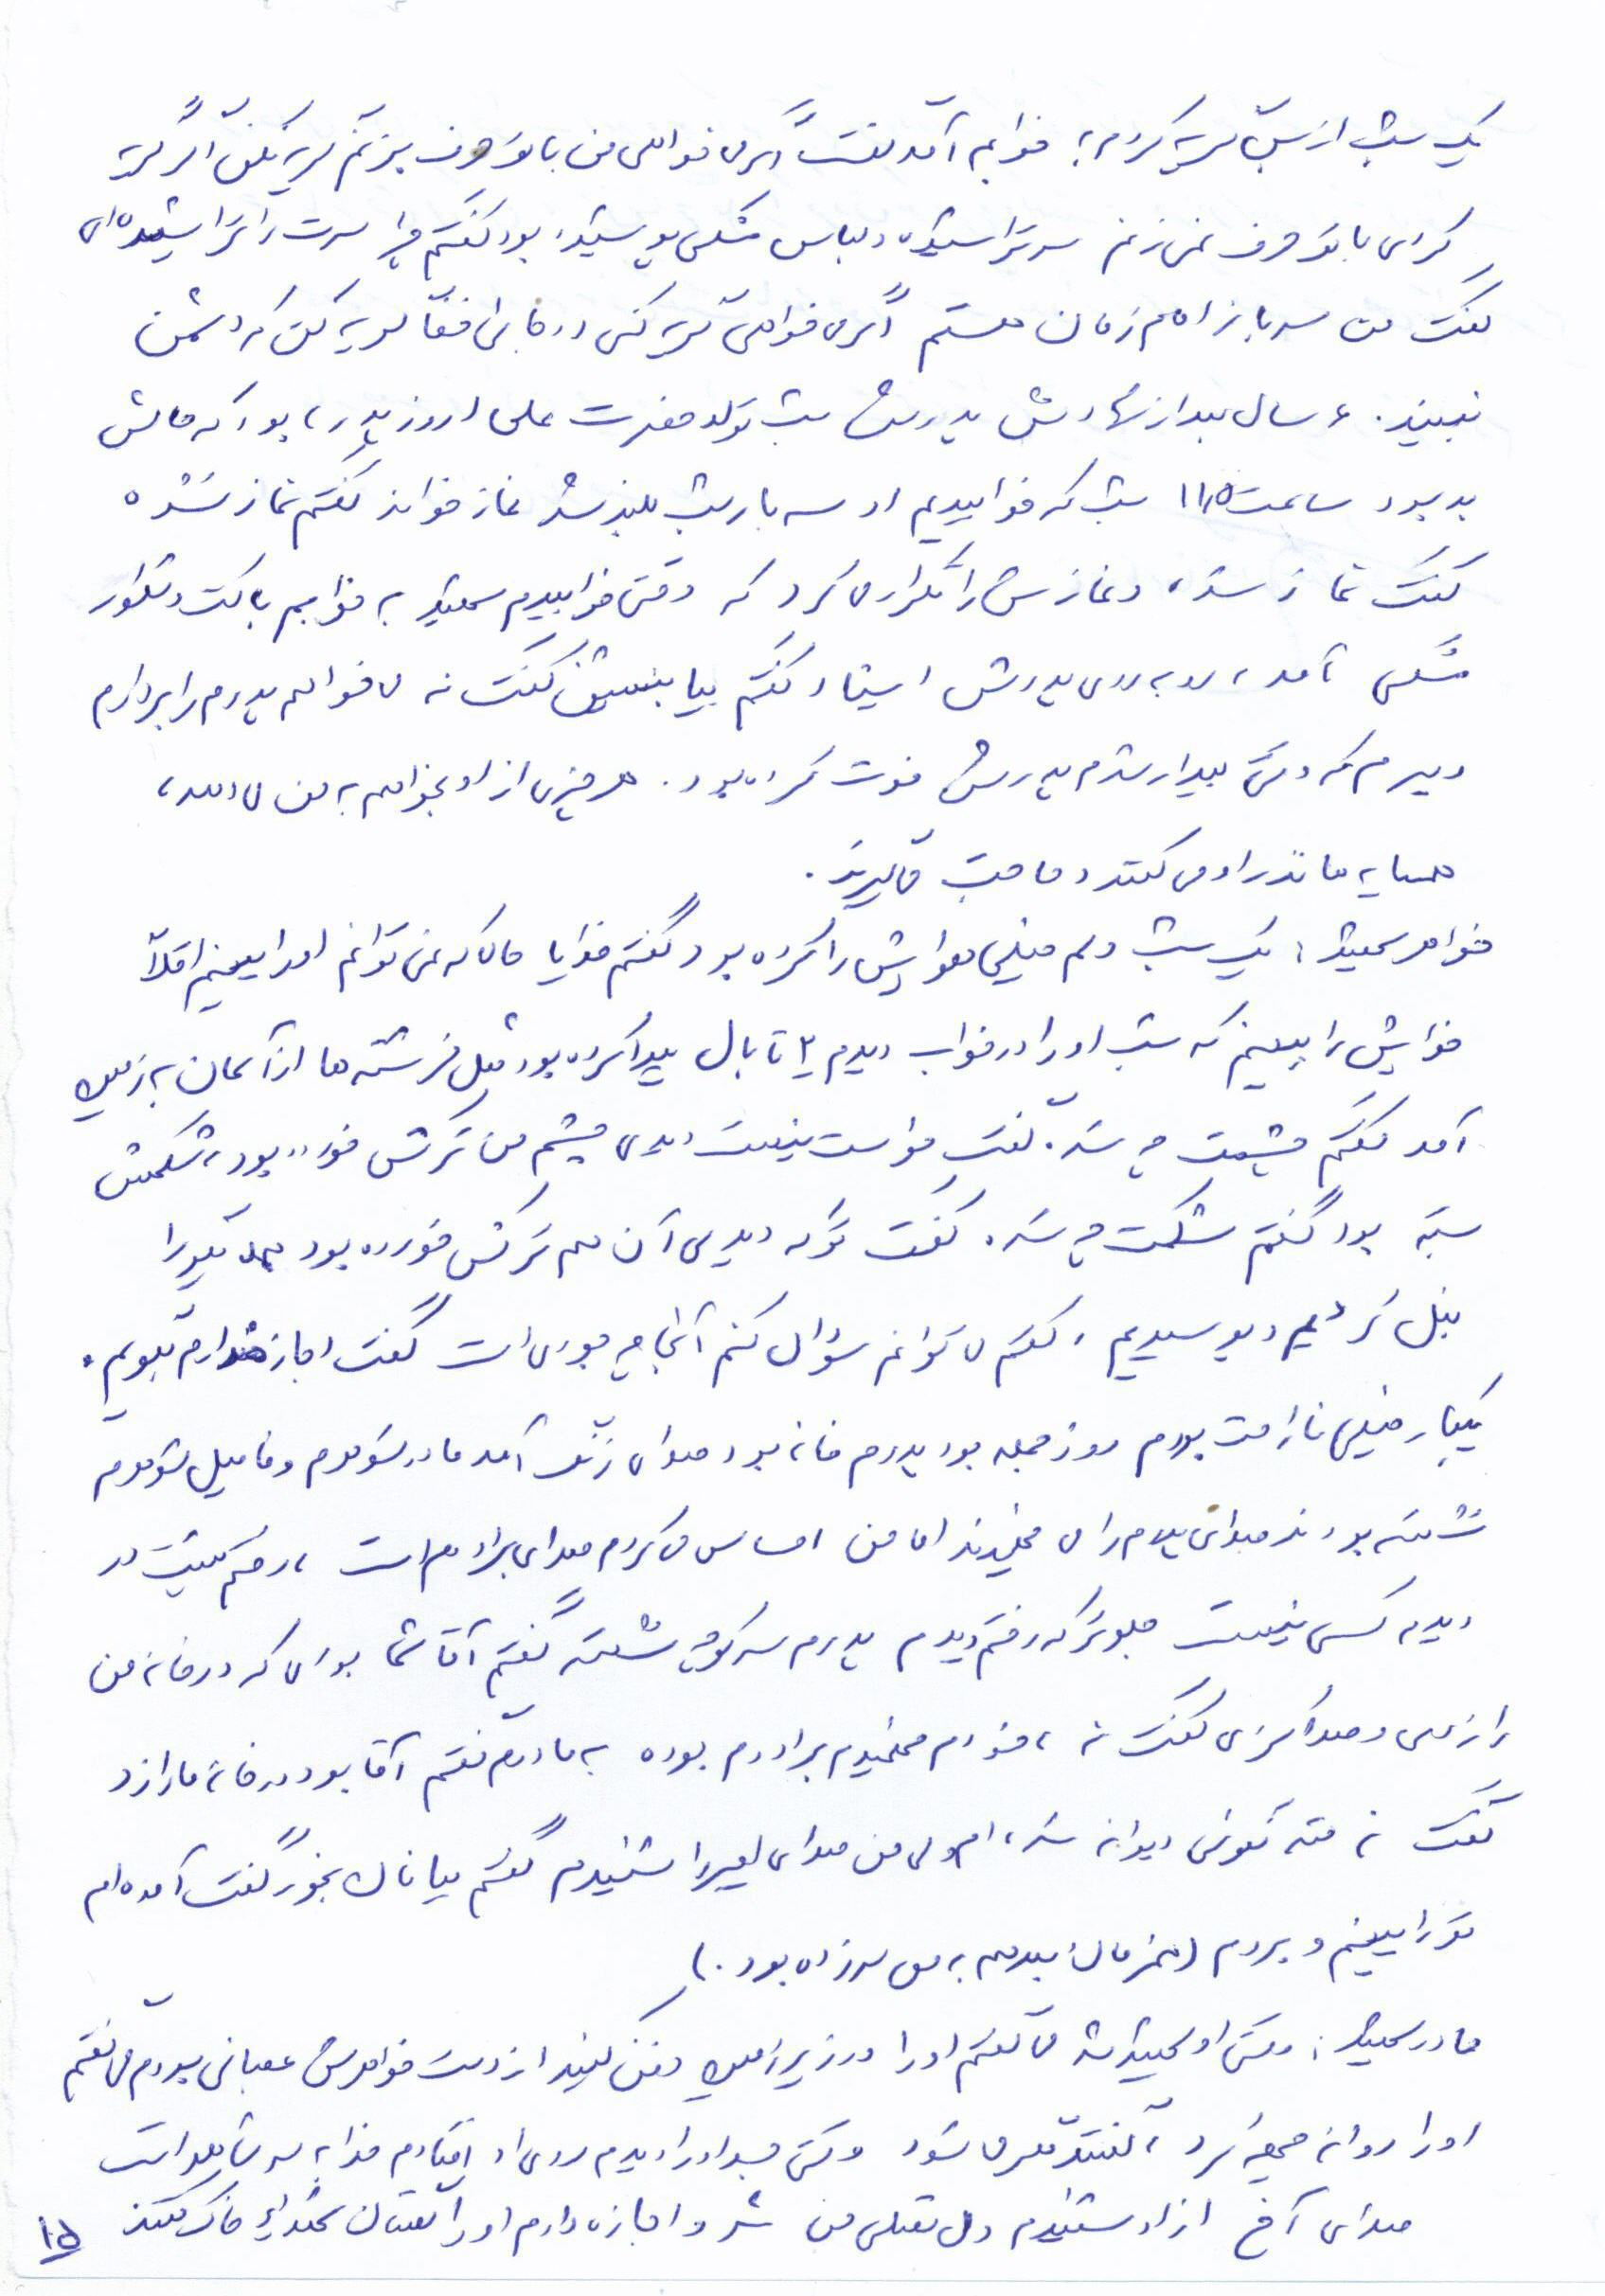 یک شب از بس گریه کردم به خوابم آمد گفت اگر می خواهی من با تو حرف بزنم گریه نکن اگر گریه
کردی با تو حرف نمی زنم سر تراشیده و لباس مشکی پوشیده بود گفتم چرا سرت را تراشیده ای
گفت من سرباز امام زمان هستم اگر می خواهی گریه کنی در جایی خفا گریه کن که دشمن
نبیند. ۶ سال بعد از شهادتش پدرش شب تولد حضرت علی (روز پدر) بود که حالش
بد بود ساعت ۱۱/۵ شب که خوابیدیم او سه بار شب بلند شد نماز خواند گفتم نماز نشده
گفت نماز شده و نمازش را تکرار می کرد که وقتی خوابیدم سعید به خوابم با کت و شلوار
مشکی آمد، رو به روی پدرش ایستاد گفتم بیا بنشین گفت نه می خواهم پدرم را بردارم
و ببرم که وقتی بیدار شدم پدرش فوت کرده بود. هر چیزی از او بخواهم به من می دهد،
همسایه ها نذر او می کنند و حاجت می گیرند.
خواهر سعید: یک شب دلم خیلی هوایش را کرده بود گفتم خدایا حالا که نمی توانم او را ببینم اقلاً
خوابش را ببینم که شب او را در خواب دیدم ۲ تا بال پیدا کرده بود مثل فرشته ها از آسمان به زمین
آمد گفتم چشمت چی شده گفت حواست نیست دیدی چشم من ترکش خورده بود، شکمش
بسته بود گفتم شکمت چی شده گفت تو که دیدی آن هم ترکش خورده بود همدیگر را
بغل کردیم و بوسیدیم، گفتم می توانم سؤال کنم آنجا چه جوری است گفت اجازه ندارم بگویم.
یکبار خیلی ناراحت بودم روز جمعه بود پدرم خانه بود صدای زنگ آمد مادر شوهرم و فامیل شوهرم
نشسته بودند صدای پدرم را می شنیدند اما من احساس می کردم صدای برادرم است، رفتم پشت در
دیدم کسی نیست جلوتر که رفتم دیدم پدرم سر کوچه نشسته گفتم آقا شما بودی که در خانه من
را زدی و صدا کردی گفت نه، خودم فهمیدم برادرم بوده به مادرم گفتم آقا بود در خانه ما را زد
گفت نه ننه نگوئی دیوانه شده ام ولی من صدای امیر را شنیدم گفتم بیا ناهار بخور گفت آمده ام
تو را ببینم و بروم (همزمان بدنم به من لرزاده بود.)
مادر سعید: وقتی او شهید شد می گفتم او را در زیر زمین دفن کنید از دست خواهرش عصبانی بودم می گفتم
او را روانه جبهه کرد، گفتند نمی شود وقتی جسد او را دیدم روی او افتادم خدا به سر شاهد است
صدای آخ از او شنیدم دل تسلی من شد و اجازه دادم او را گلستان شهدا خاک کنند
۱۵